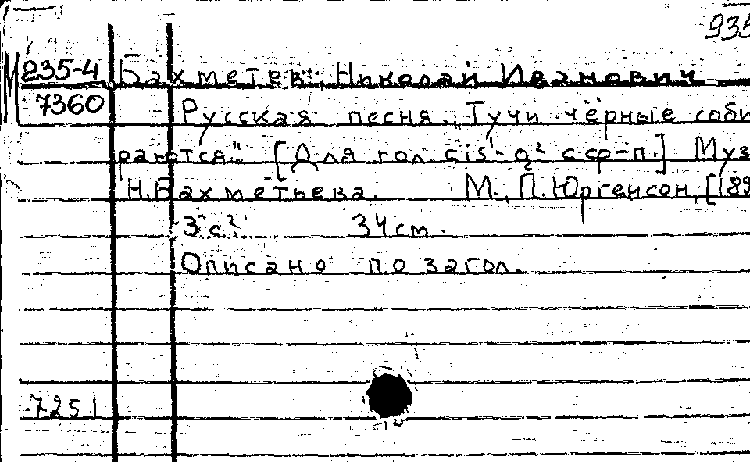 935
235-4 Бахметев, Николай Иванович
7360 Русская песня. Тучи чёрные соби
раются" [Для гол. cis¹-g² с ф-п.] Муз
Н. Бахметьева. М., П. Юргенсон, [189
3 с. 34 см.
Описано по загол.
7251